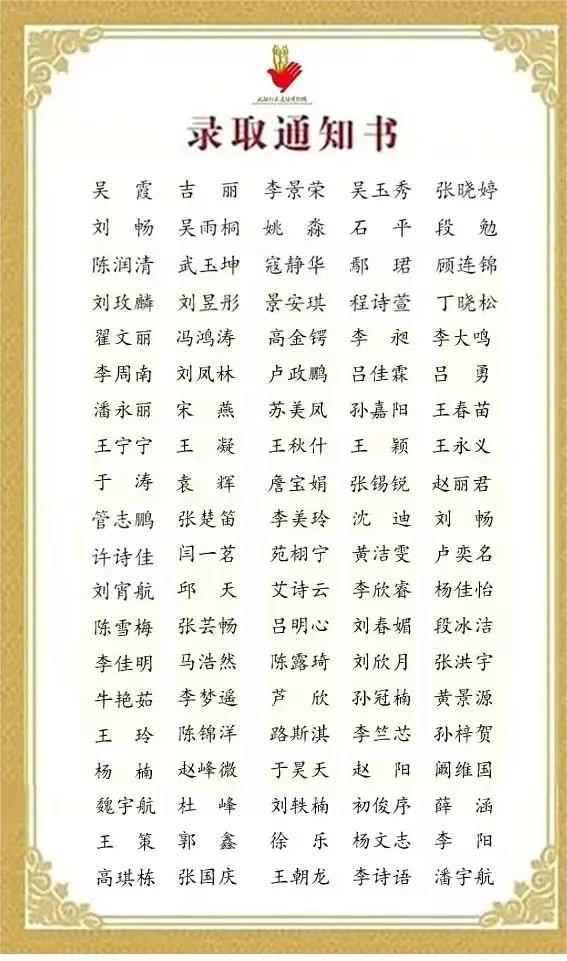 录取通知书
吴 霞 吉 丽 李景荣 吴玉秀 张晓婷
刘 畅 吴雨桐 姚 淼 石 平 段 勉
陈润清 武玉坤 寇静华 鄢 珺 顾连锦
刘玫麟 刘昱彤 景安琪 程诗萱 丁晓松
翟文丽 冯鸿涛 高金锷 李 昶 李大鸣
李周南 刘凤林 卢政鹏 吕佳霖 吕 勇
潘永丽 宋 燕 苏美凤 孙嘉阳 王春苗
王宁宁 王 凝 王秋什 王 颖 王永义
于 涛 袁 辉 詹宝娟 张锡锐 赵丽君
管志鹏 张楚笛 李美玲 沈 迪 刘 畅
许诗佳 闫一茗 苑栩宁 黄洁雯 卢奕名
刘宵航 邱 天 艾诗云 李欣睿 杨佳怡
陈雪梅 张芸畅 吕明心 刘春媚 段冰洁
李佳明 马浩然 陈露琦 刘欣月 张洪宇
牛艳茹 李梦遥 芦 欣 孙冠楠 黄景源
王 玲 陈锦洋 路斯淇 李竺芯 孙梓贺
杨 楠 赵峰微 于昊天 赵 阳 阚维国
魏宇航 杜 峰 刘轶楠 初俊序 薛 涵
王 策 郭 鑫 徐 乐 杨文志 李 阳
高琪栋 张国庆 王朝龙 李诗语 潘宇航